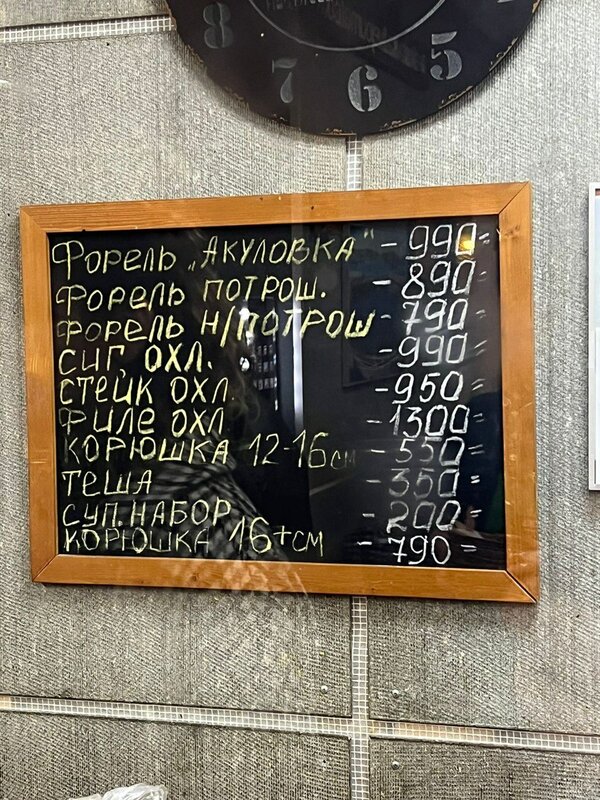 8 7 6 5
ФОРЕЛЬ „АКУЛОВКА" - 990=
ФОРЕЛЬ ПОТРОШ. - 890=
ФОРЕЛЬ Н/ПОТРОШ - 790=
СИГ, ОХЛ. - 990=
СТЕЙК ОХЛ. - 950=
ФИЛЕ ОХЛ - 1300=
КОРЮШКА 12-16 см - 550=
ТЕША - 350=
СУП. НАБОР - 200=
КОРЮШКА 16+см - 790=